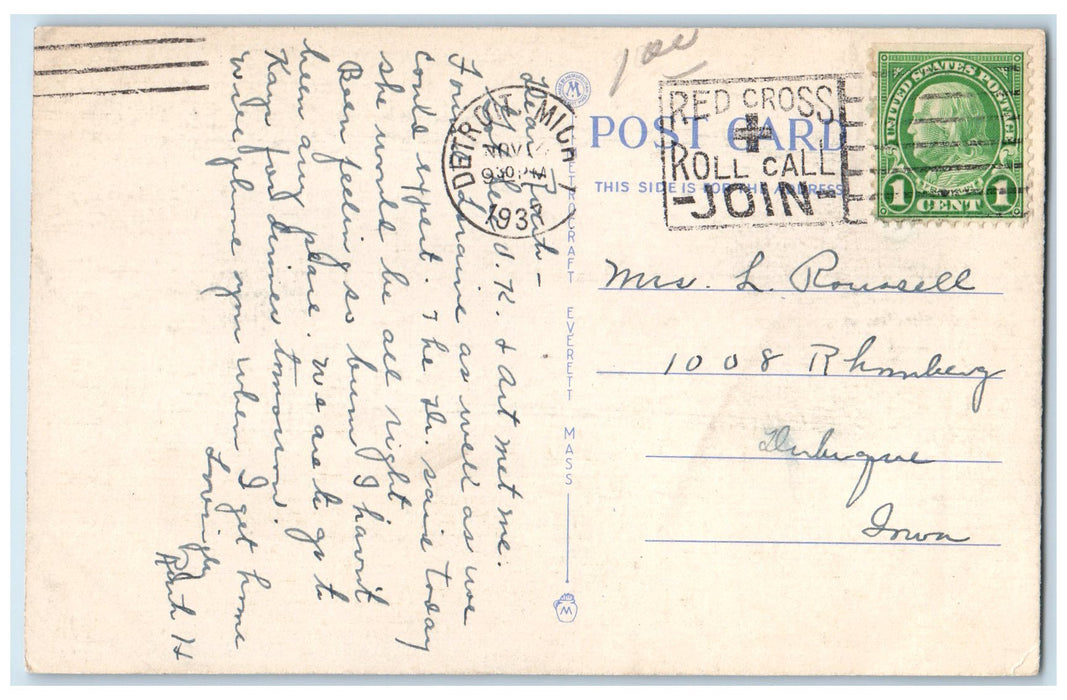 Dear Ruth -
O.K. & Art met me.
Found Lorraine as well as we
could expect. The Dr. said today
she would be all right
Been feeling so bum I havn't
been any place. We are to go to
Kays for dinner tomorrow.
Will phone you when I get home
Lovingly
Ruth H
DETROIT, MICH
NOV
930 PM
193
RED CROSS
ROLL CALL
-JOIN-
UNITED STATES POSTAGE
FRANKLIN
1 CENT 1
POST CARD
THIS SIDE IS FOR THE ADDRESS
METROCRAFT EVERETT MASS
M
Mrs. L. Roussell
1008 Rhomberg
Dubuque
Iowa